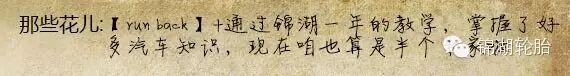 那些花儿:【run back】+通过锦湖一年的教学,掌握了好
多汽车知识,现在咱也算是半个
锦湖轮胎